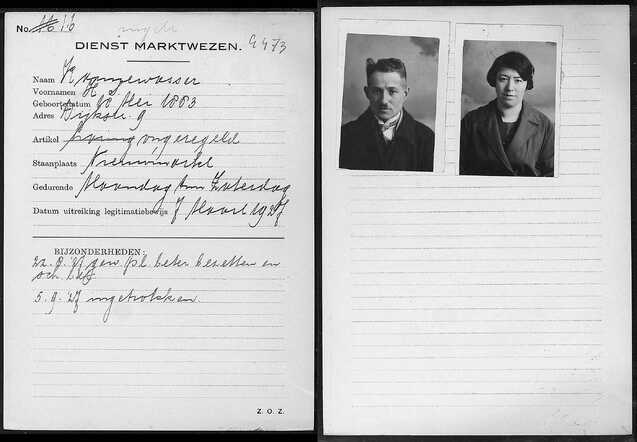 No. 16
DIENST MARKTWEZEN. 9473
Naam Krongewasser
Voornamen H J
Geboortedatum Mei 1883
Adres Dijkstr. 9
Artikel ongeregeld
Staanplaats Nieuwmarkt
Gedurende Maandag t/m Zaterdag
Datum uitreiking legitimatiebewijs 7 Maart 1927
BIJZONDERHEDEN:
pl. beter bezetten en
5.9.27 ingetrokken.
Z. O. Z.